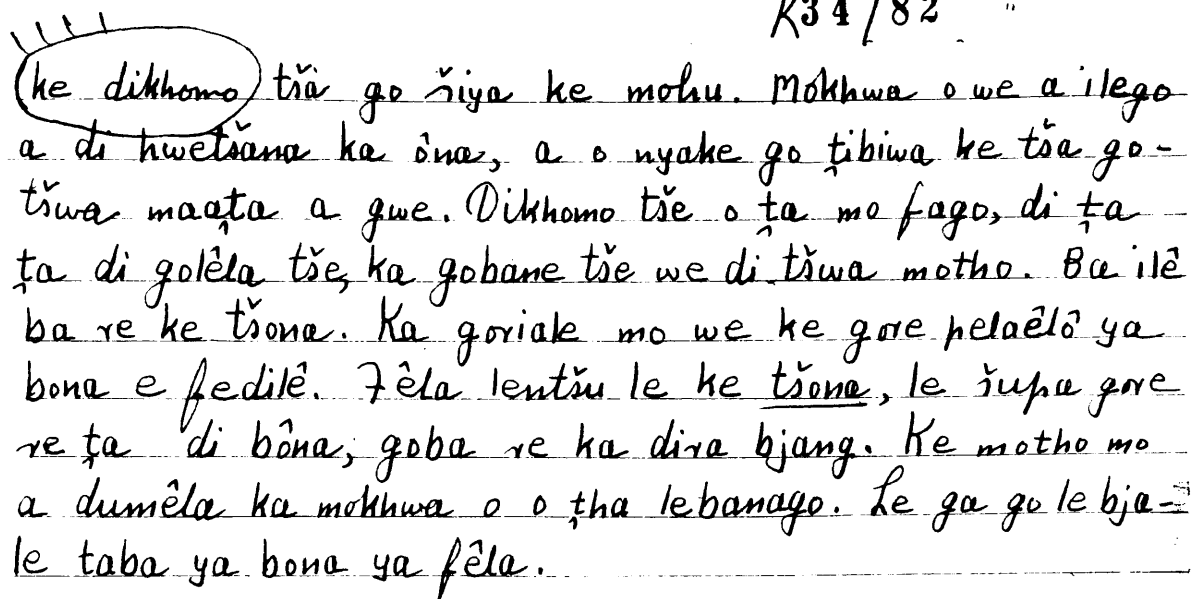 K34/82
ke dikhomo tšà go šiya ke mohu. Mokhwa o we a ilego
a di hwetšana ka ôna, a o nyake go ṱibiwa ke tša go-
tšwa maaṱa a gwe. Dikhomo tše o ṱa mo fago, di ṱa
ṱa di golêla tše, ka gobane tše we di tšwa motho. Ba ilê
ba re ke tšona. Ka goriale mo we ke gore pelaêlô ya
bona e fedilê. Fêla lentšu le ke tšona, le šupa gore
re ṱa di bôna, goba re ka dira bjang. Ke motho mo
a dumêla ka mokhwa o o ṱha lebanago. Le ga go le bja-
le taba ya bona ya fêla.